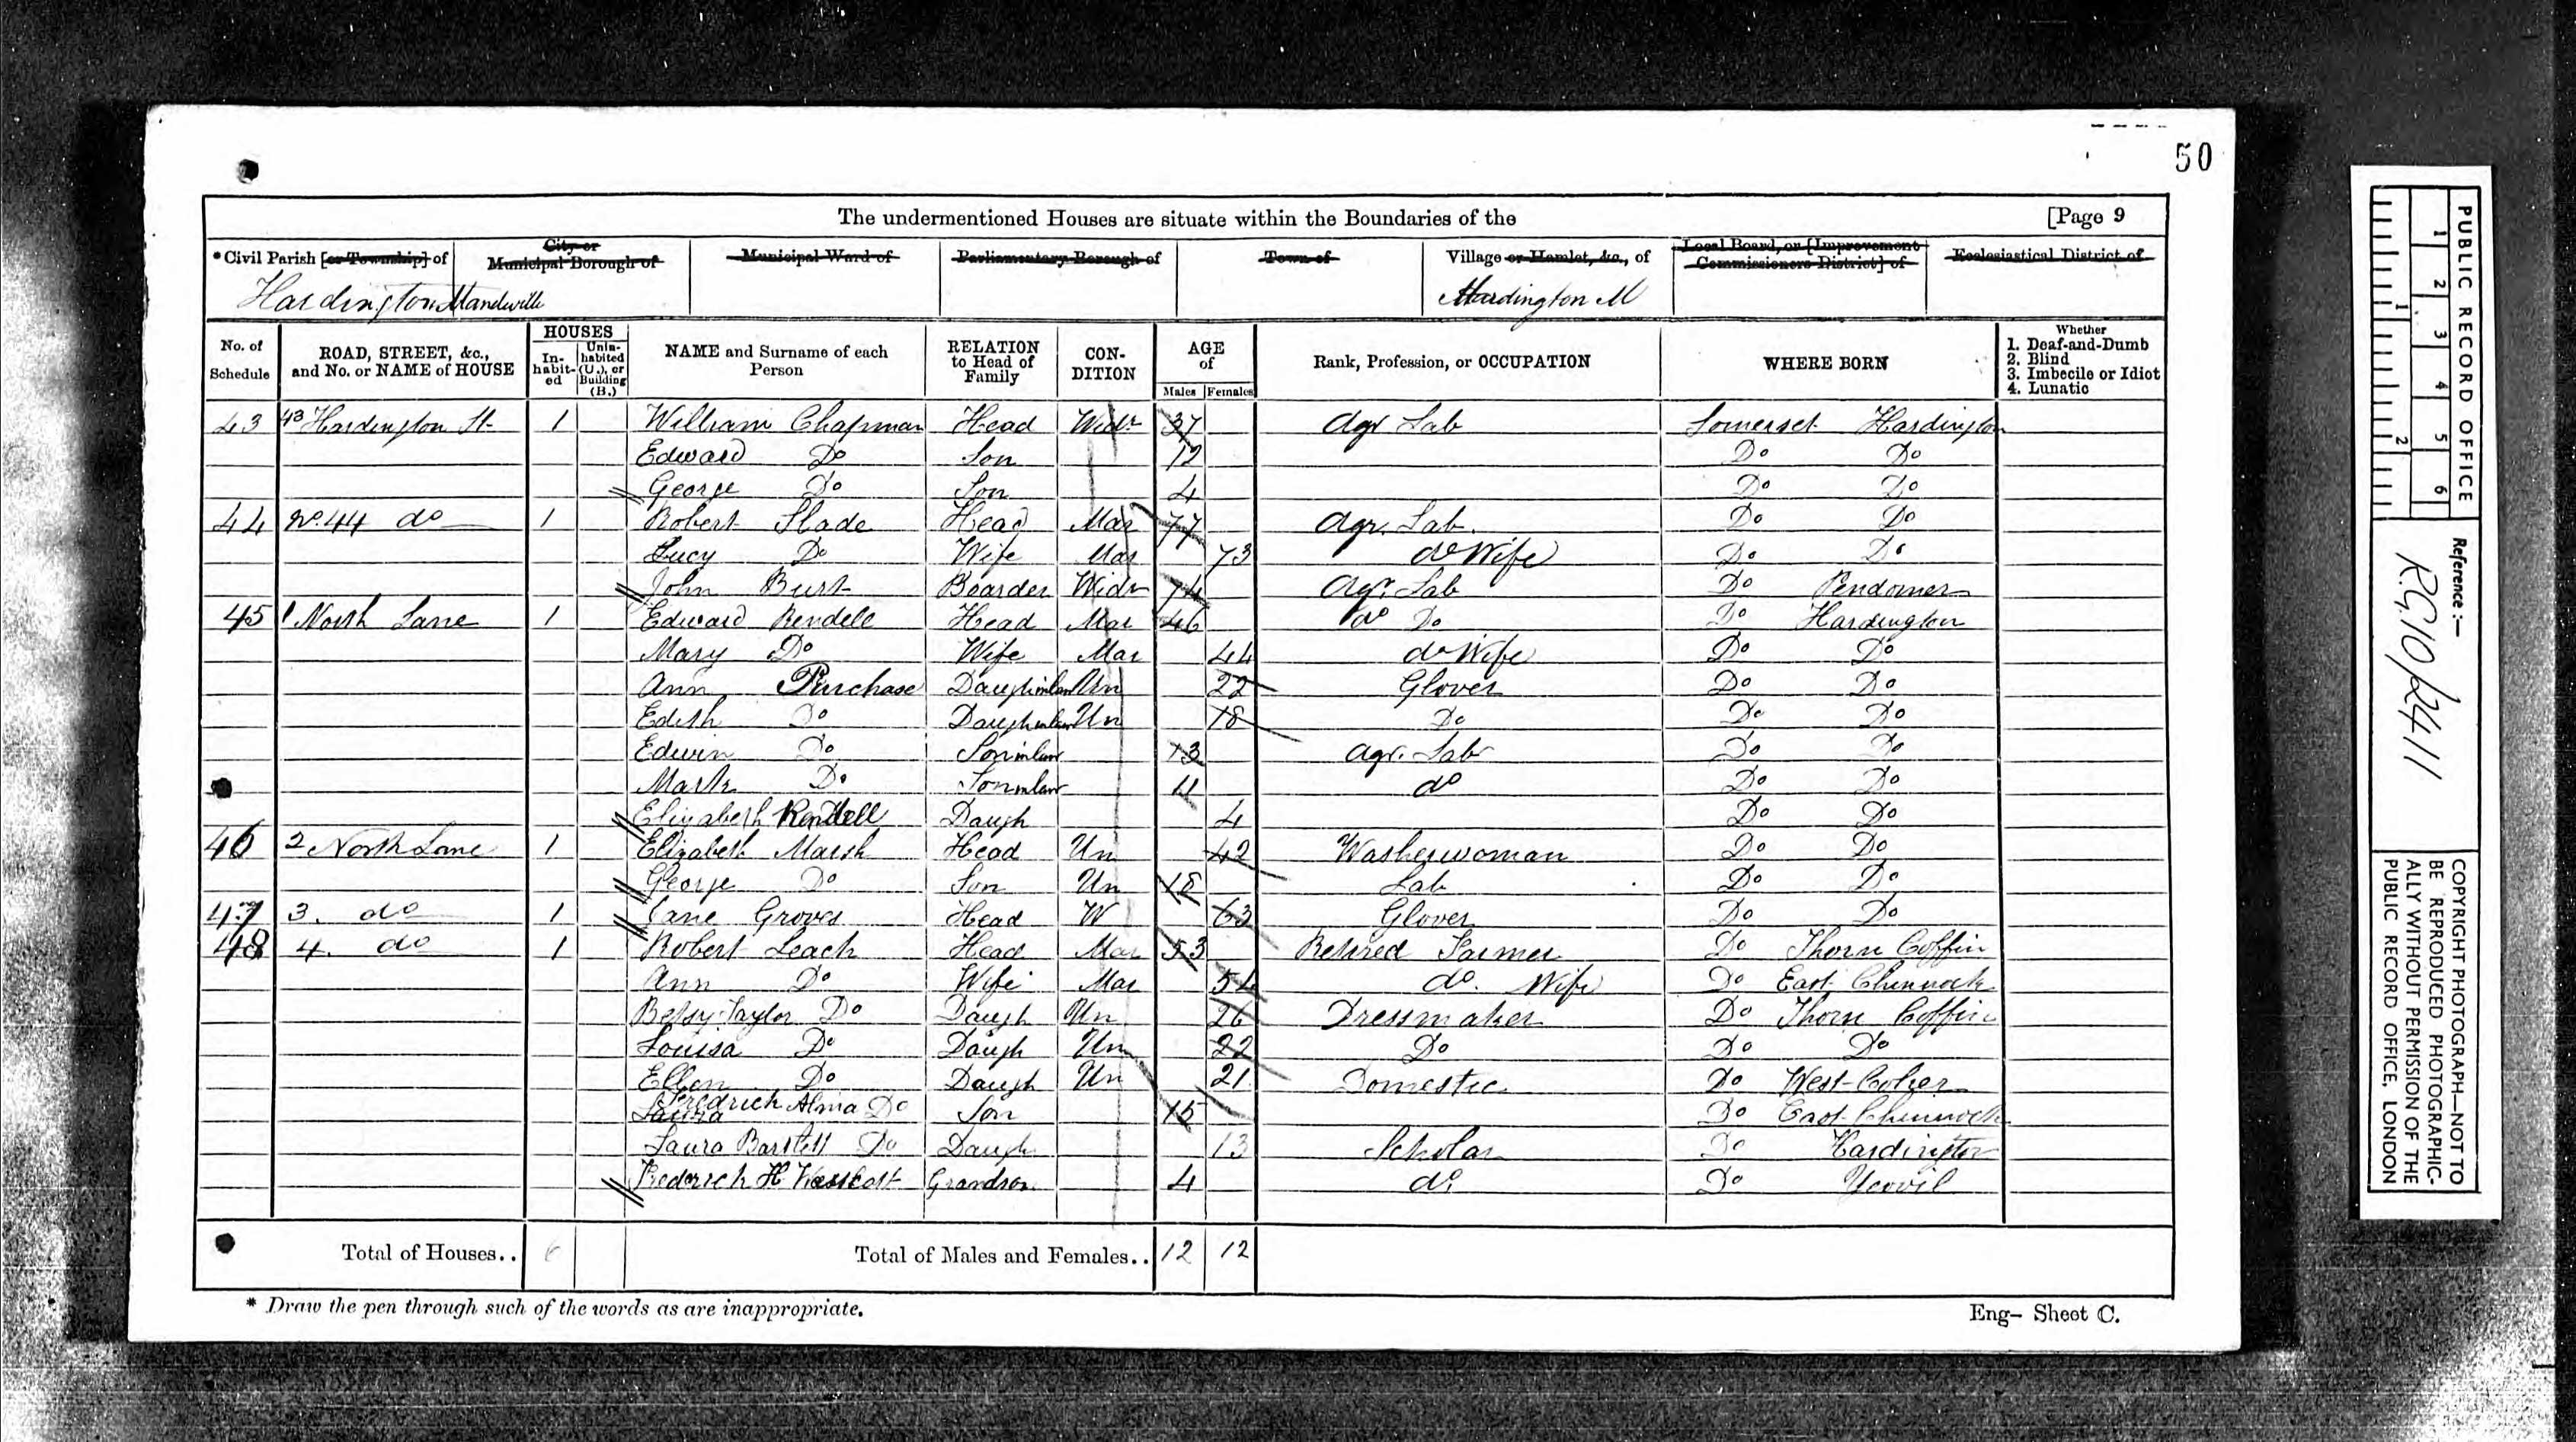 50
The undermentioned Houses are situate within the Boundaries of the [Page 9
*Civil Parish [or Township] of
City or Municipal Borough of
Municipal Ward of
Parliamentary Borough of
Town of
Village or Hamlet, &c., of
Local Board, or [Improvement Commissioners District] of
Ecclesiastical District of
Hardington Mandeville
Hardington M
No. of Schedule
ROAD, STREET, &c., and No. or NAME of HOUSE
HOUSES
Inhabited
Uninhabited (U.), or Building (B.)
NAME and Surname of each Person
RELATION to Head of Family
CONDITION
AGE of
Males Females
Rank, Profession, or OCCUPATION
WHERE BORN
Whether
1. Deaf-and-Dumb
2. Blind
3. Imbecile or Idiot
4. Lunatic
43 43 Hardington St 1 William Chapman Head Widr 37 Agr Lab Somerset Hardington
Edward Do Son 12 Do Do
George Do Son 4 Do Do
44 No. 44 do 1 Robert Slade Head Mar 77 Agr. Lab. Do Do
Lucy Do Wife Mar 73 do Wife Do Do
John Burt Boarder Widr 74 Agr. Lab Do Pendomer
45 1 North Lane 1 Edward Rendell Head Mar 46 do Do Do Hardington
Mary Do Wife Mar 44 do Wife Do Do
Ann Purchase Daugh inlaw Un 22 Glover Do Do
Edith Do Daugh inlaw Un 18 Do Do Do
Edwin Do Son inlaw 13 Agr. Lab Do Do
Mark Do Son inlaw 11 do Do Do
Elizabeth Rendell Daugh 4 Do Do
46 2 North Lane 1 Elizabeth Marsh Head Un 42 Washerwoman Do Do
George Do Son Un 18 Lab Do Do
47 3. do 1 Jane Groves Head W 63 Glover Do Do
48 4. do 1 Robert Leach Head Mar 53 Retired Farmer Do Thorn Coffin
Ann Do Wife Mar 54 do. Wife Do East Chinnock
Betsy Taylor Do Daugh Un 26 Dressmaker Do Thorn Coffin
Louisa Do Daugh Un 22 Do Do Do
Ellen Do Daugh Un 21 Domestic Do West Coker
Fredrich Alma Do Son 15 Do East Chinnock
Laura
Laura Bartlett Do Daugh 13 Scholar Do Hardington
Frederich H Grandson 4 do Do Yeovil
Total of Houses.. 6 Total of Males and Females.. 12 12
* Draw the pen through such of the words as are inappropriate.
Eng- Sheet C.
PUBLIC RECORD OFFICE
1 2 3 4 5 6
1 2
Reference :-
R.G.10/2411
COPYRIGHT PHOTOGRAPH—NOT TO
BE REPRODUCED PHOTOGRAPHIC-
ALLY WITHOUT PERMISSION OF THE
PUBLIC RECORD OFFICE, LONDON